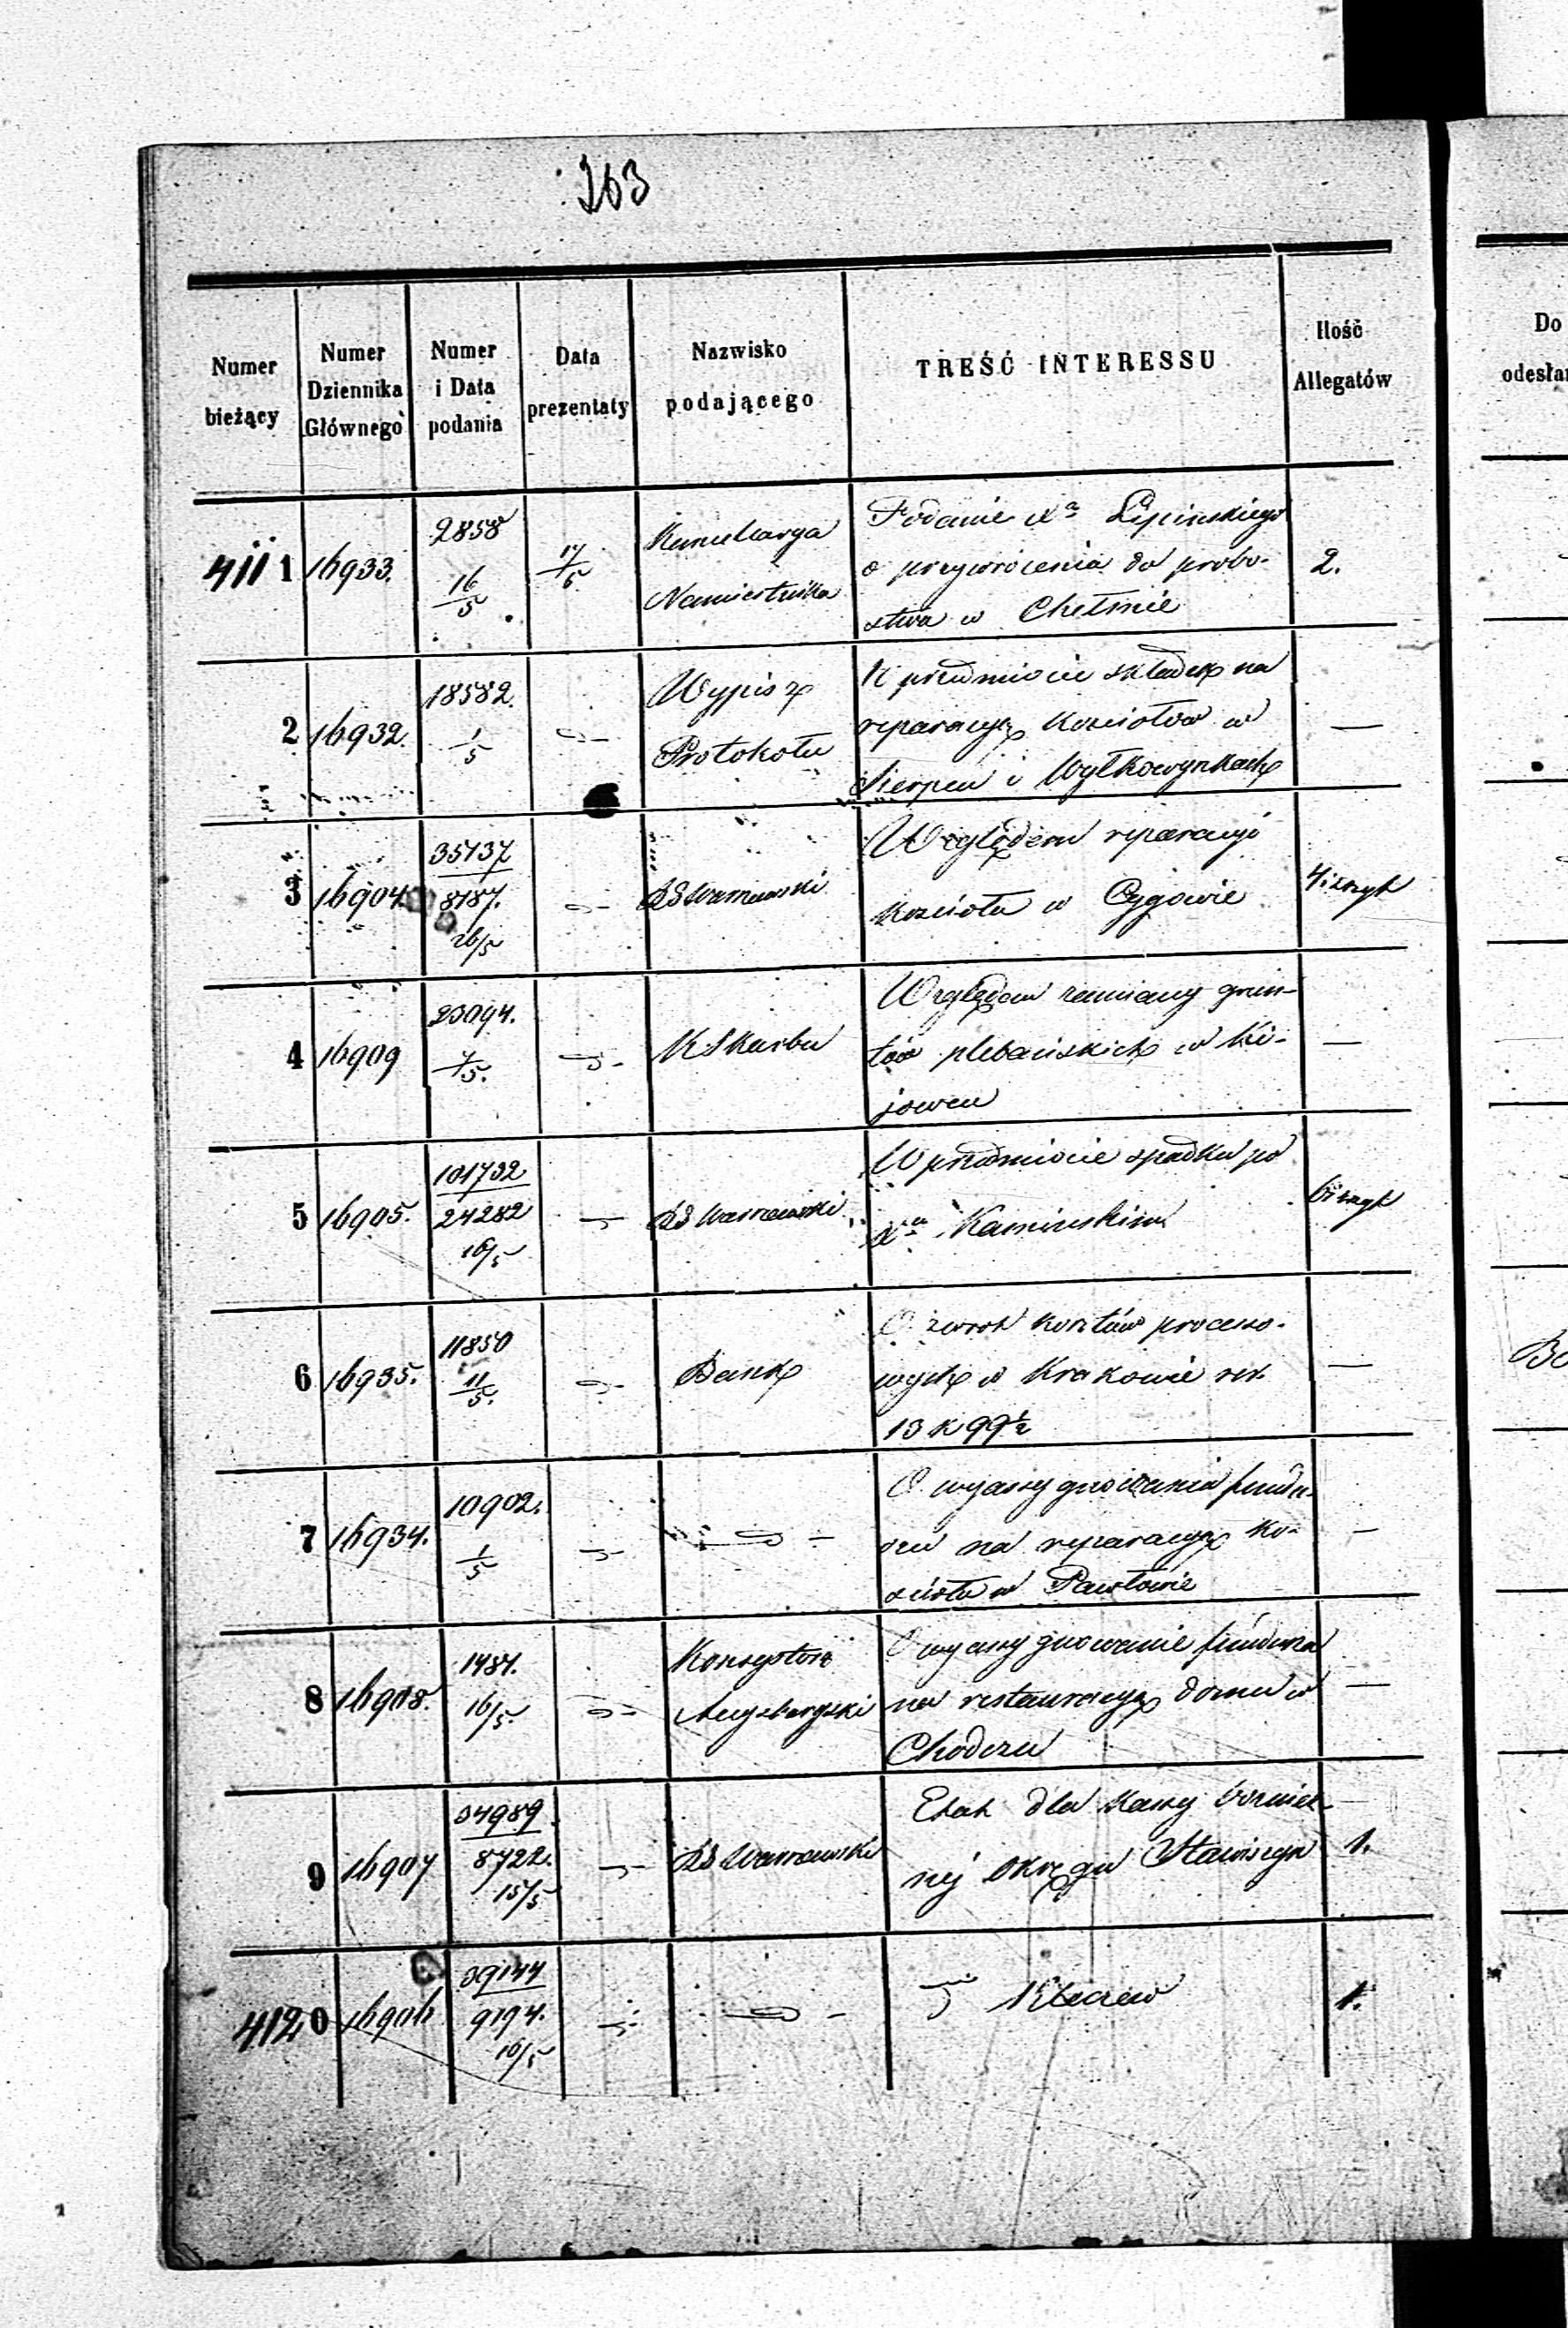 263
Numer bieżący
Numer Dziennika Głównego
Numer i Data podania
Data prezentaty
Nazwisko podającego
TREŚĆ INTERESSU
Ilość Allegatów
Do
4111 16933. 2858 16/5 17/5 Kancellarya Namiestnika
Podanie Xa Lipinskiego
o przywrócenia do probo-
stwa w Chełmie
2.
2 16932. 18582. 1/5 Wypis z Protokołu
W przedmiocie składek na
reparacyę kosciołów w
Sierpcu i Wyłkowyszkach
—
3 16904. 35137 8187. 26/5 RG Warszawski
Względem reparacyi
kościoła w Cygowie
4: zszyt
4 16909 23094. 7/5. K Skarbu
Względem zamiany grun-
tów plebańskich w Ki-
jowcu
—
5 16905. 101732 24282 16/5 RG Warszawski
W przedmiocie spadku po
Xu Kaminskim
6: zszyt
6 16935. 11850 11/5. Bank
O zwrot kosztów processo-
wych w Krakowie rsr.
13 k 99½
—
7 16934. 10902. 1/5
O wyassygnowania fundu-
szu na reparacyę ko-
scioła w Pawłowie
—
8 16908. 1481. 16/5. Konsystorz Augsburgski
O wyassygnowanie funduszu
na restauracyę domu w
Chodczu
—
9 16907 34989 8722. 15/5 RG Warszawski
Etat dla kassy bożnicz-
nej Okręgu Stawiszyn
1.
4120 16906 39144 9194. 16/5
Kleczew
1.